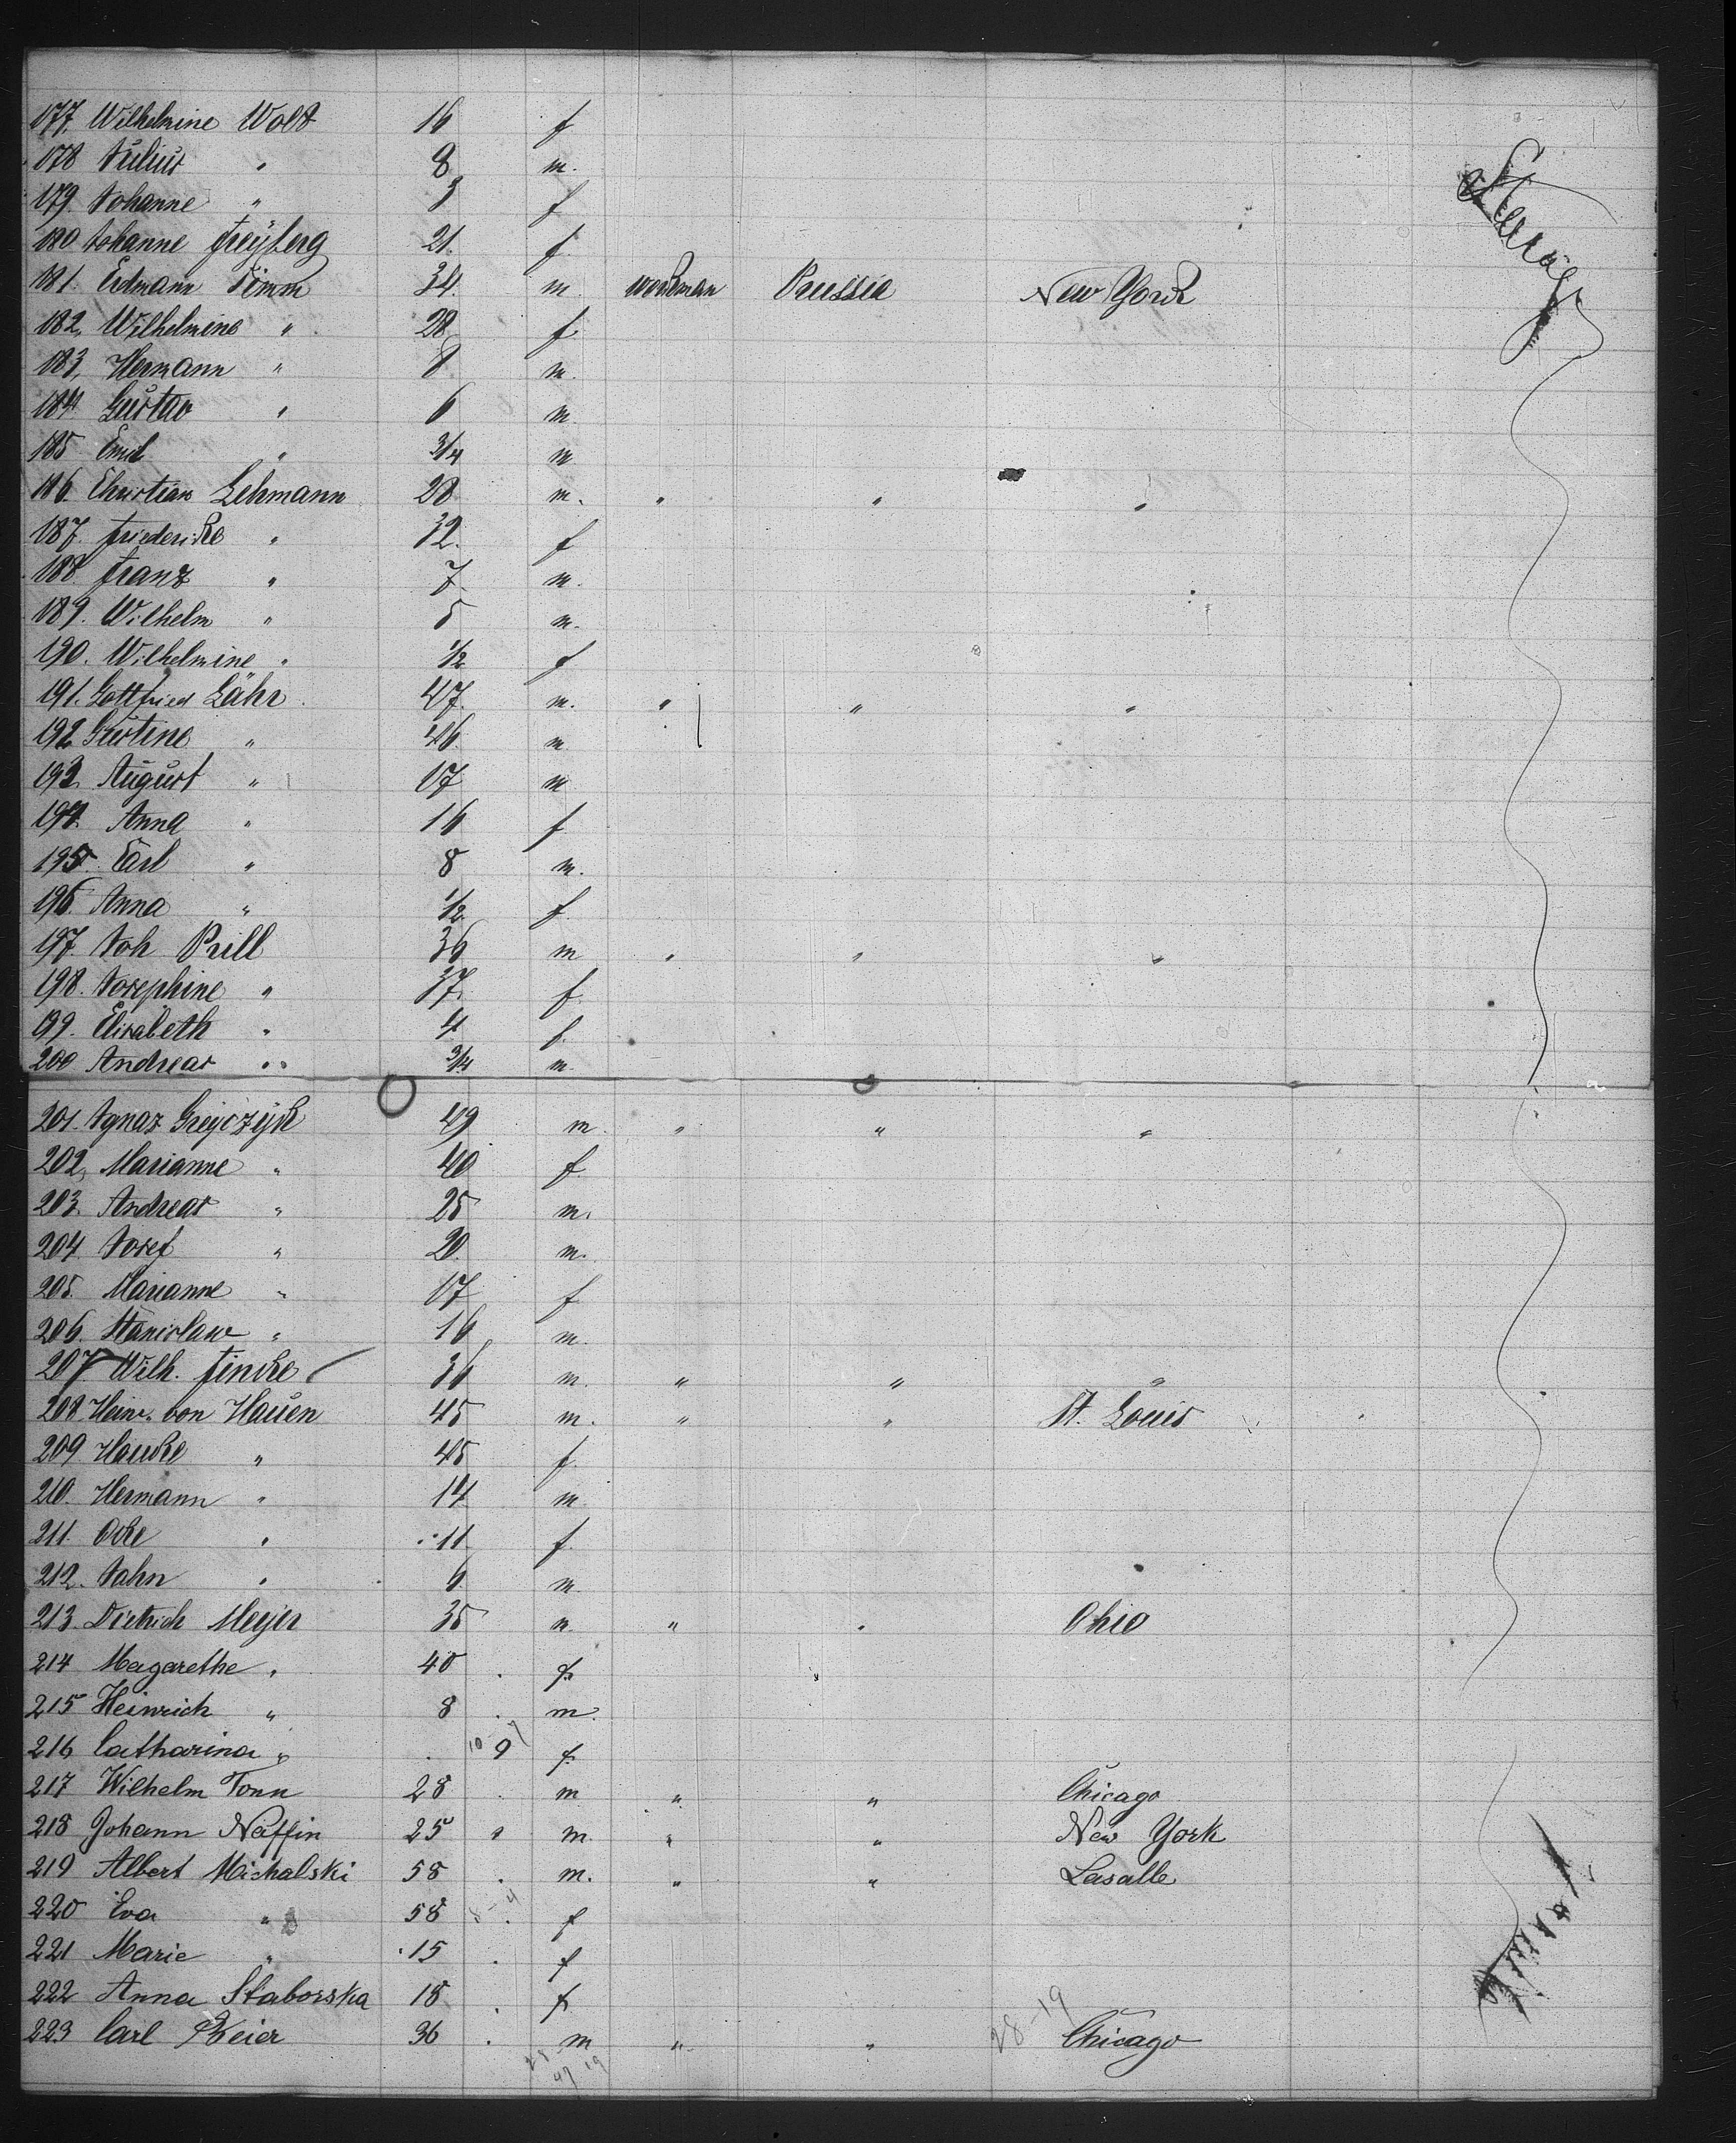 177. Wilhelmine Wolt 16 f
178 Julius " 8 m.
179. Johanne " 3 f
180 Johanne Freyberg 21. f.
181. Erdmann Timm 34. m. workman Prussia New York
182. Wilhelmine " 28 f
183. Hermann " 8 m.
184 Gustav " 6 m.
185 Emil " 3/4 m
186. Christian Lehmann 28 m. " " "
187. Friederike " 32. f
188 Franz " 7. m.
189. Wilhelm " 5 m.
190. Wilhelmine " 1/2 f
191. Gottfried Lähr 47. m. " " "
192 Justine " 46. m
193. August " 17 m
194. Anna " 16 f
195. Carl " 8 m.
196. Anna " 1/2 f.
197. Joh Prill 36 m " " "
198. Josephine " 37. f.
199. Elisabeth " 4 f.
200 Andreas " 3/4 m.
201. Ignaz 49 m. " " "
202. Marianne " 40 f.
203. Andreas " 25 m.
204 Josef " 20. m.
205. Marianne " 17 f
206. Stanislaw " 16 m.
207 Wilh. Fincke 36 m. " " "
208 Heinr. von Hauen 45 m. " " St. Louis
209 Hauke " 45 f.
210. Hermann " 14 m
211. Ocke " 11 f.
212. Jahn " 6. m
213. Dietrich Meyer 35 m. " " Ohio
214 Magarethe " 40 . f.
215 Heinrich " 8 . m.
216 Catharina " . 9 f.
217 Wilhelm Tonn 28 . m " " Chicago
218 Johann Naffin 25 " m. " " New York
219 Albert Michalski 58 . m. " " Lasalle
220 Eva " 58 . f
221 Marie " 15 . f
222 Anna Staborska 18 . f
223 Carl 36 . m " " 28-19 Chicago
Steerage